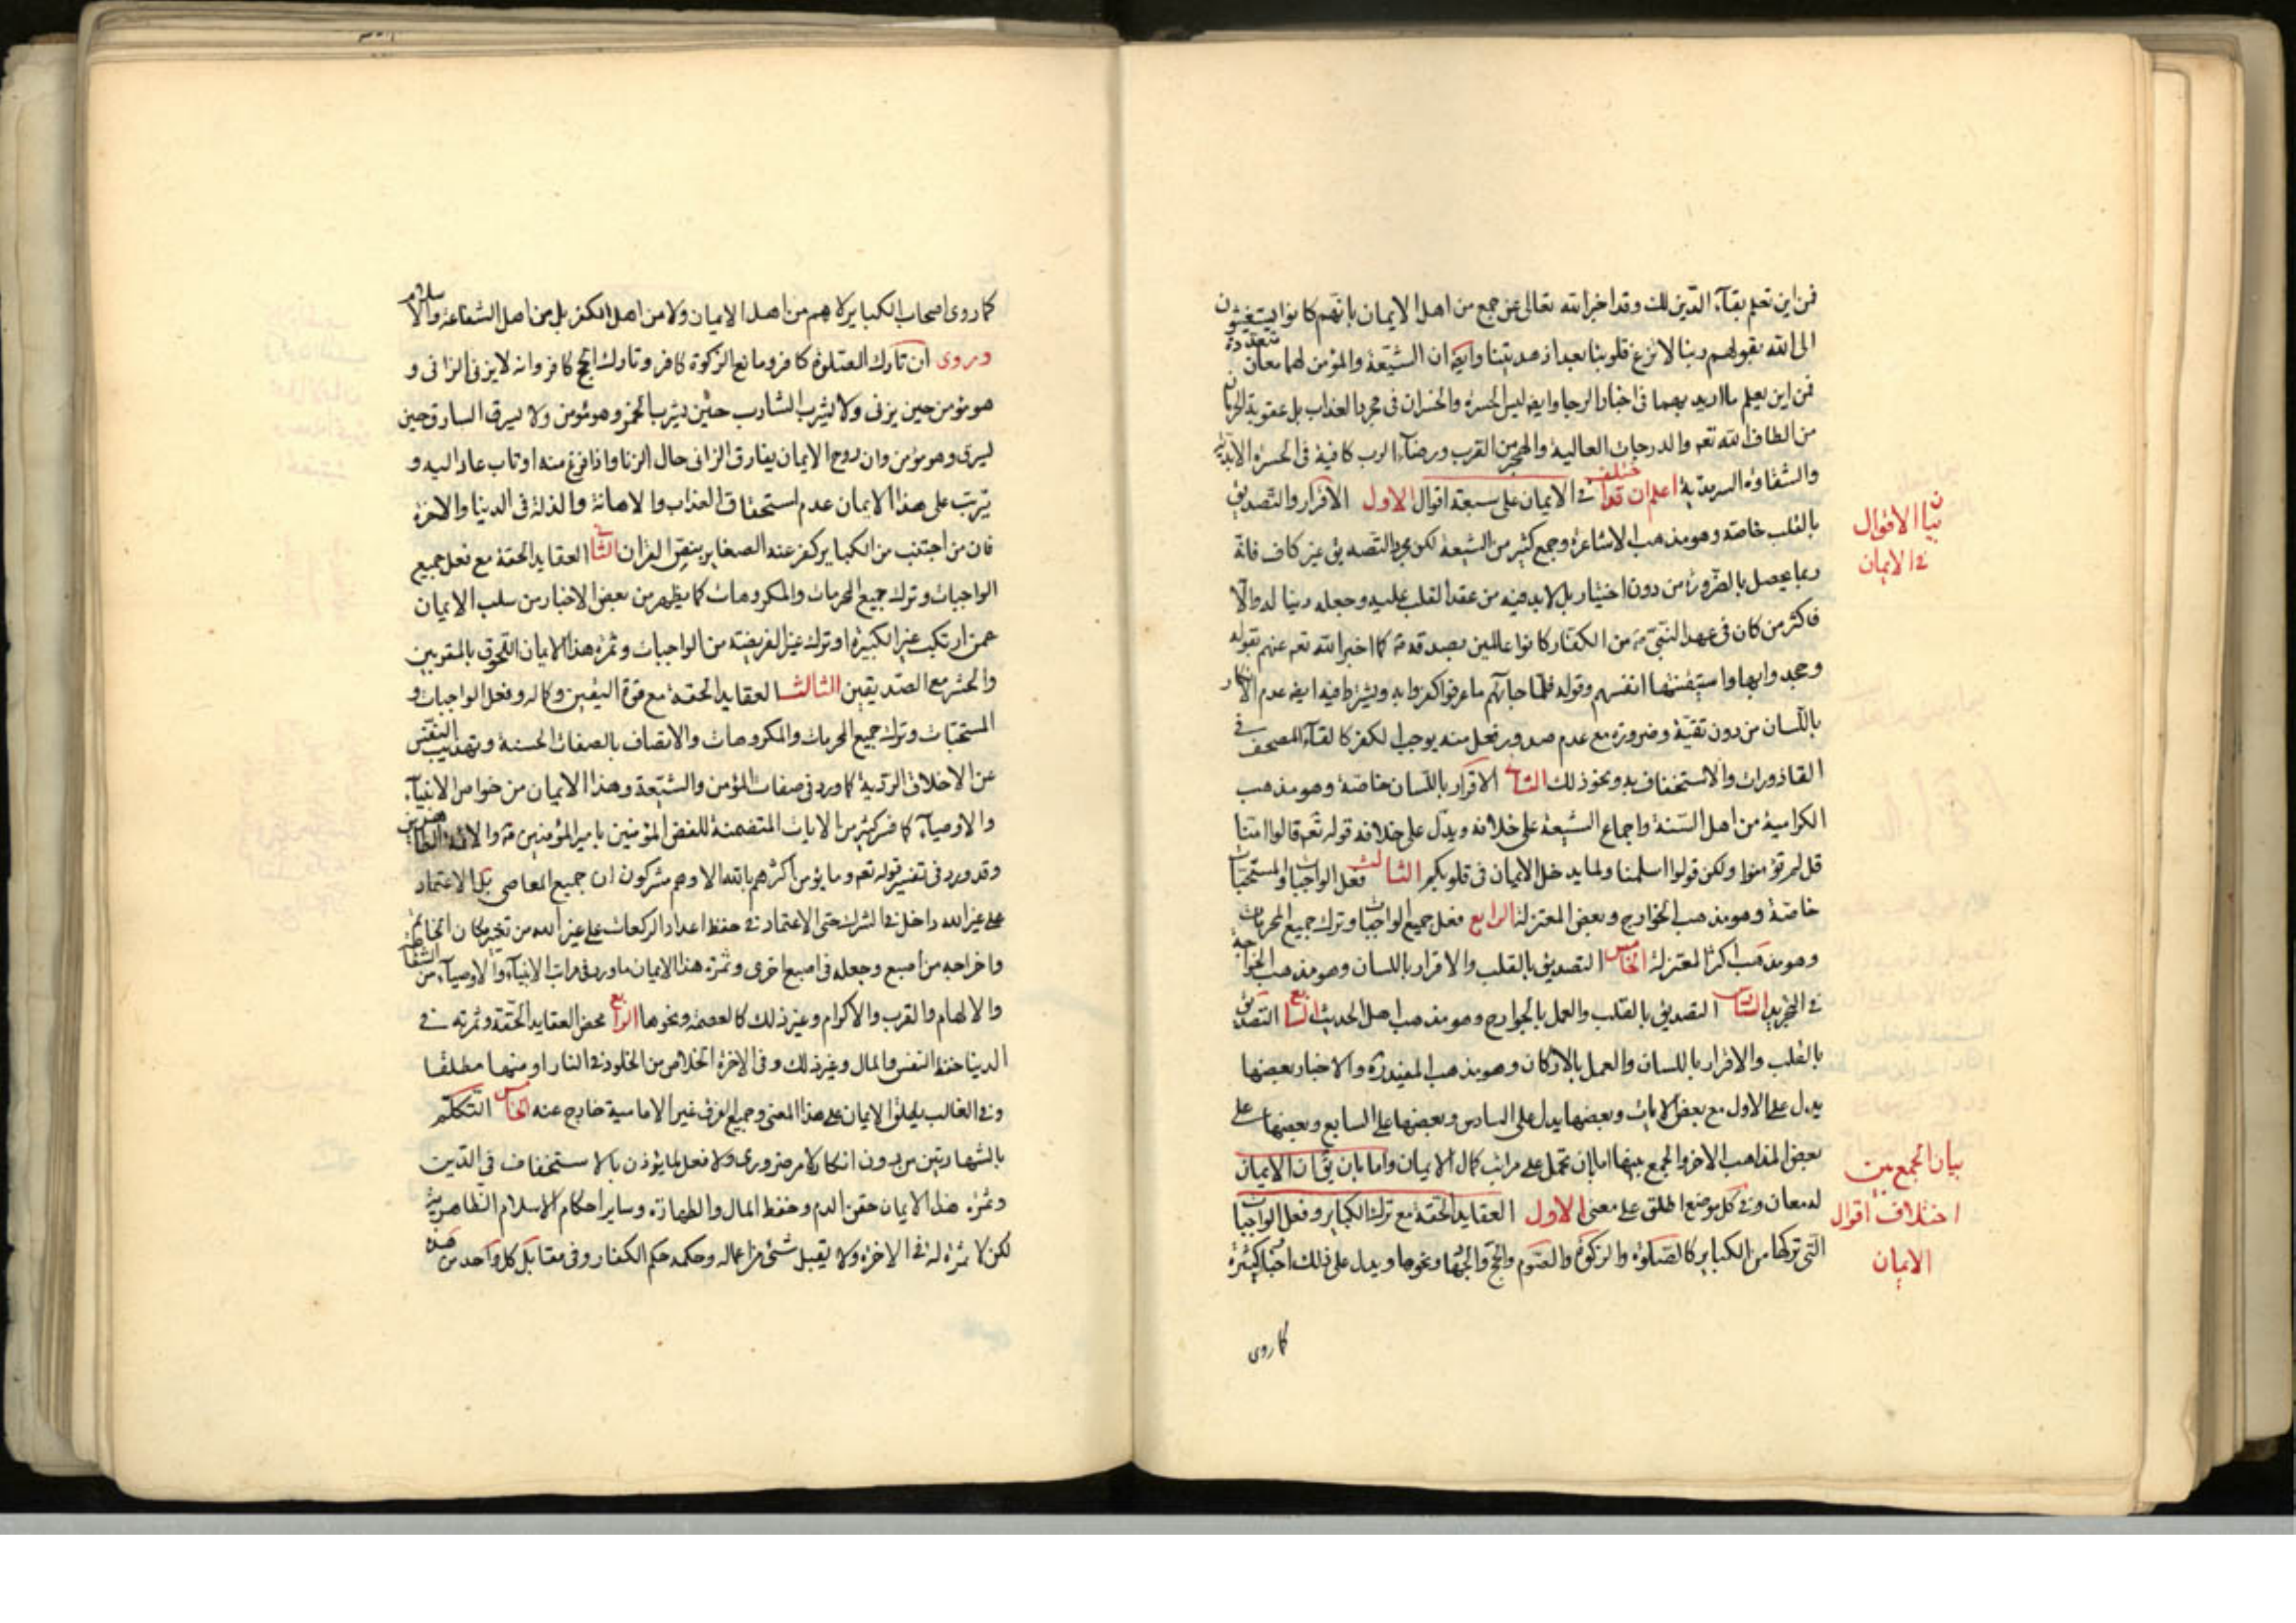 فمن اين تعلم بقآء الدين لك وقد اخبر الله تعالى عن جمع من اهل الايمان بانهم كانوا يستغيثون
الى الله بقولهم ربنا لا تزغ قلوبنا بعد اذ هديتنا وايضا ان الشيعة والمؤمن لهما معان متعددة
فمن اين يعلم ما اريد بهما فى اخبار الرجا وايضا ليس الحسرة والخسران فى مجرد العذاب بل عقوبة الحرمان
من الطاف الله تعم والدرجات العالية والهجر من القرب ورضآء الرب كافية فى الحسرة الابدية
والشقاوة السرمدية اعلم ان قد اختلف فى الايمان على سبعة اقوال الاول الاقرار والتصديق
بالقلب خاصة وهو مذهب الاشاعرة وجمع كثير من الشيعة لكن مجرد التصديق غير كاف فانه
ربما يحصل بالضرورة من دون اختيار بل لابد فيه من عقد القلب عليه وجعله دينا له والا
فاكثر من كان فى عهد النبى من الكفار كانوا عالمين بصدقه كما اخبر الله تعم عنهم بقوله
وجحدوا بها واستيقنتها انفسهم وقوله فلما جاءهم ما عرفوا كفروا به ويشترط فيه ايضا عدم الانكار
باللسان من دون تقية وضرورة مع عدم صدور فعل منه يوجب الكفر كالقاء المصحف فى
القاذورات والاستخفاف به ونحو ذلك الثانى الاقرار باللسان خاصة وهو مذهب
الكرامية من اهل السنة واجماع الشيعة على خلافه ويدل على خلافه قوله تعم قالوا امنا
قل لم تؤمنوا ولكن قولوا اسلمنا ولما يدخل الايمان فى قلوبكم الثالث فعل الواجبات والمستحبات
خاصة وهو مذهب الخوارج وبعض المعتزلة الرابع فعل جميع الواجبات وترك جميع المحرمات
وهو مذهب اكثر المعتزلة الخامس التصديق بالقلب والاقرار باللسان وهو مذهب الخواجه
فى التجريد السادس التصديق بالقلب والعمل بالجوارح وهو مذهب اهل الحديث السابع التصديق
بالقلب والاقرار باللسان والعمل بالاركان وهو مذهب المفيد ره والاخبار بعضها
يدل على الاول مع بعض الايات وبعضها يدل على السادس وبعضها على السابع وبعضها على
بعض المذاهب الاخر والجمع بينها اما بان تحمل على مراتب كمال الايمان واما بان يق ان الايمان
له معان وفى كل موضع اطلق على معنى الاول العقايد الحقة مع ترك الكباير وفعل الواجبات
التى تركها من الكباير كالصلوة والزكوة والصوم والحج والجهاد ونحوها ويدل على ذلك اخبار كثيرة
كما روى
بيان الاقوال
فى الايمان
بيان الجمع بين
اختلاف اقوال
الايمان
كما روى اصحاب الكباير لا هم من اهل الايمان ولا من اهل الكفر بل من اهل الشفاعة والاسلام
وروى ان تارك الصلوة كافر ومانع الزكوة كافر وتارك الحج كافر وانه لا يزنى الزانى و
هو مؤمن حين يزنى ولا يشرب الشارب حين يشرب الخمر وهو مؤمن ولا يسرق السارق حين
يسرق وهو مؤمن وان روح الايمان يفارق الزانى حال الزنا واذا فرغ منه او تاب عاد اليه و
يترتب على هذا الايمان عدم استحقاق العذاب والاهانة والذلة فى الدنيا والاخرة
فان من اجتنب من الكباير كفر عنه الصغاير بنص القران الثانى العقايد الحقة مع فعل جميع
الواجبات وترك جميع المحرمات والمكروهات كما يظهر من بعض الاخبار من سلب الايمان
عمن ارتكب غير الكبيرة او ترك غير الفريضة من الواجبات وثمرة هذا الايمان اللحوق بالمقربين
والحشر مع الصديقين الثالث العقايد الحقة مع قوة اليقين وكماله وفعل الواجبات و
المستحبات وترك جميع المحرمات والمكروهات والاتصاف بالصفات الحسنة وتهذيب النفس
عن الاخلاق الردية كما ورد فى صفات المؤمن والشيعة وهذا الايمان من خواص الانبيآء
والاوصيآء كما فسر كثير من الايات المتضمنة للفظ المؤمنين بامير المؤمنين والائمة الطاهرين
وقد ورد فى تفسير قوله تعم وما يؤمن اكثرهم بالله الا وهم مشركون ان جميع المعاصى بل الاعتماد
على غير الله داخل فى الشرك حتى الاعتماد فى حفظ اعداد الركعات على غير الله من تغير مكان الخاتم
واخراجه من اصبع وجعله فى اصبع اخرى وثمرة هذا الايمان ما ورد فى مراتب الانبيآء والاوصيآء من الشفاعة
والالهام والقرب والاكرام وغير ذلك كالعصمة ونحوها الرابع محض العقايد الحقة وثمرته فى
الدنيا حفظ النفس والمال وغير ذلك وفى الاخرة الخلاص من الخلود فى النار او منها مطلقا
وفى الغالب يطلق الايمان على هذا المعنى وجميع الفرق غير الامامية خارج عنه الخامس التكلم
بالشهادتين من دون انكار لامر ضرورى ولا فعل لما يؤذن بالاستخفاف فى الدين
وثمرة هذا الايمان حقن الدم وحفظ المال والطهارة وساير احكام الاسلام الظاهرية
لكن لا ثمرة له فى الاخرة ولا يقبل شئ من اعماله وحكمه حكم الكفار وفى مقابل كل واحد من هذه